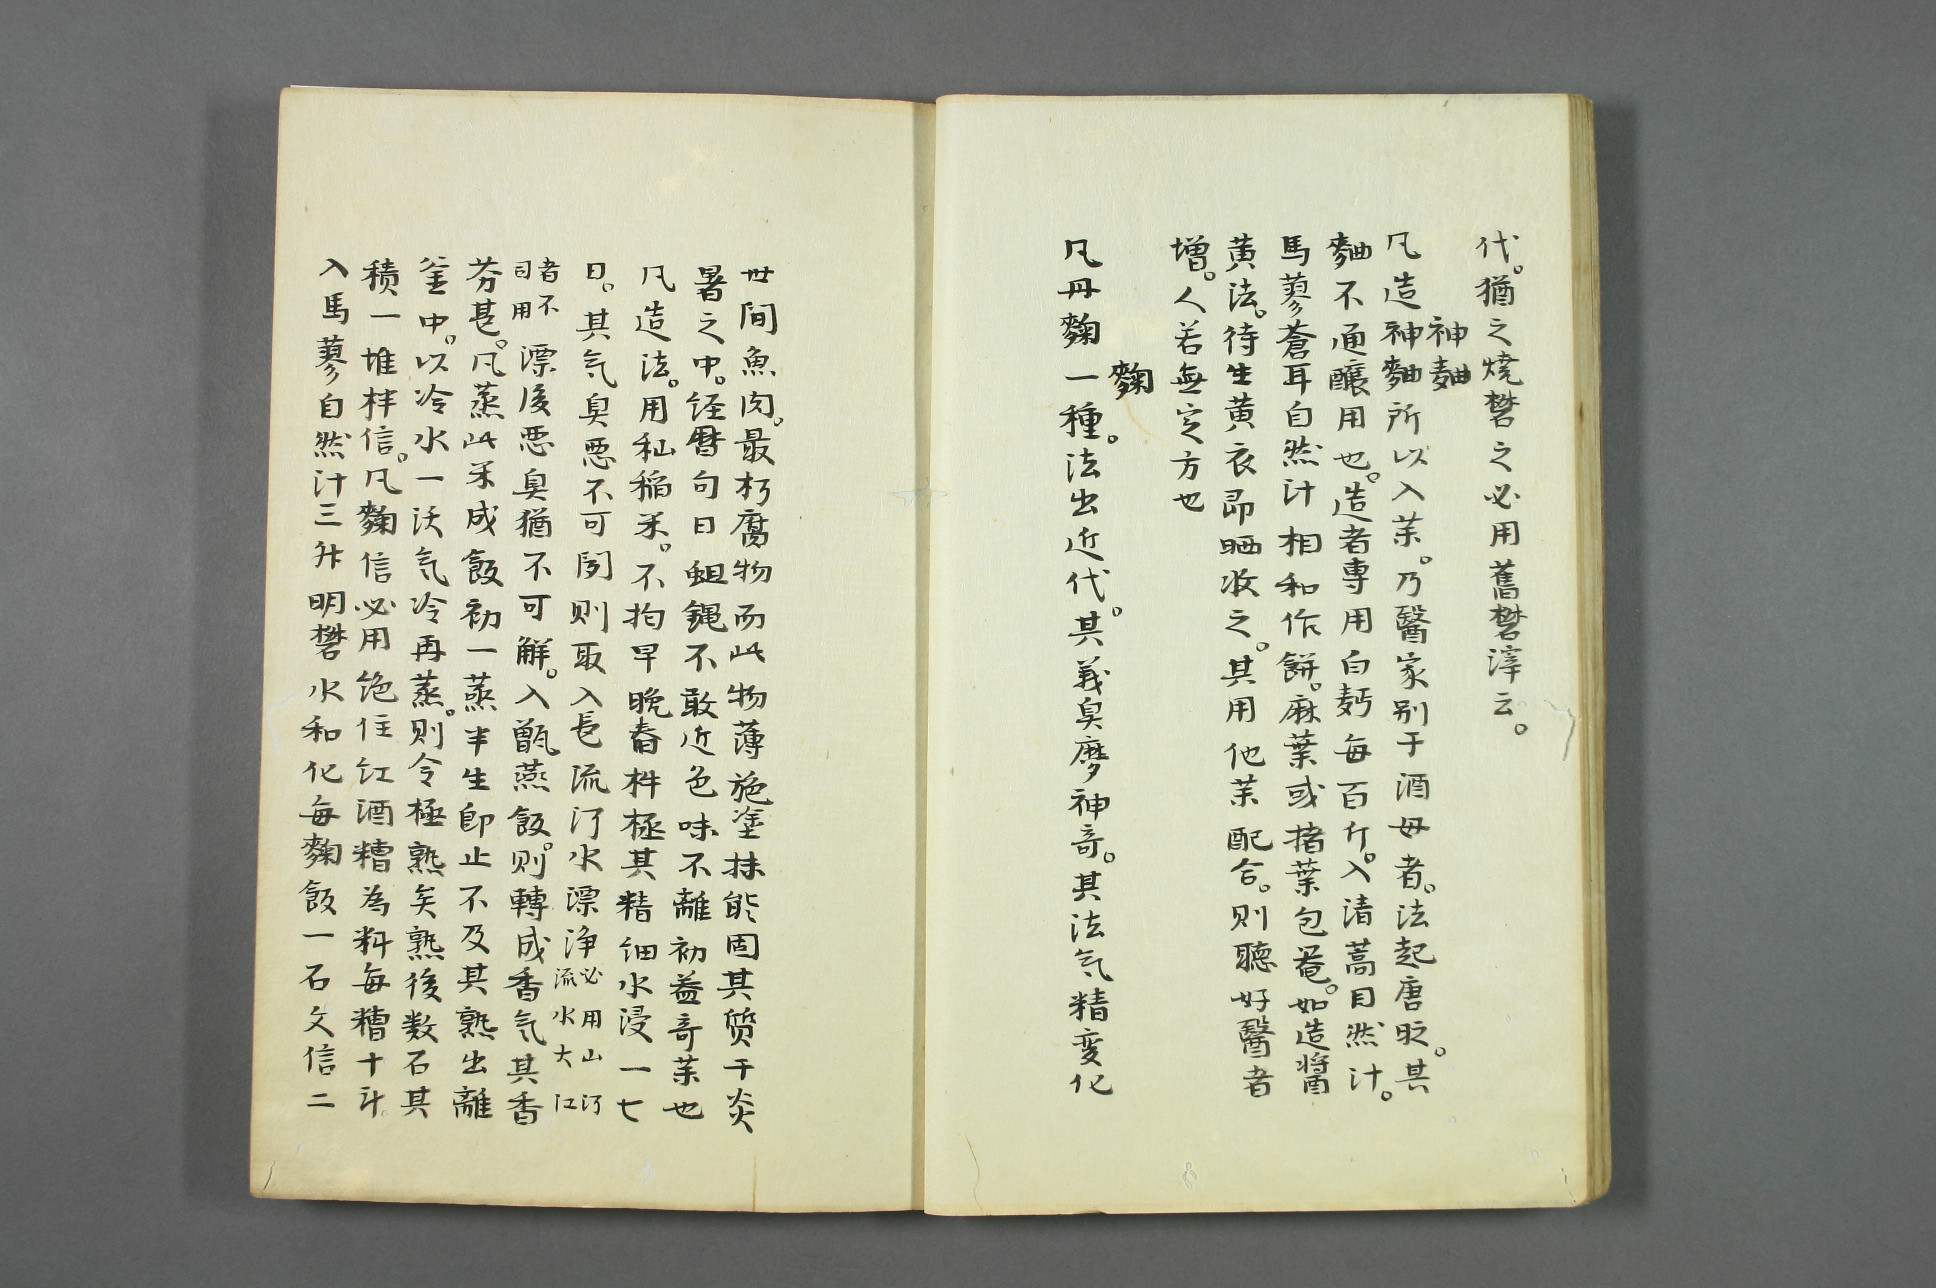 代。猶之燒礬之必用舊礬滓云。
神麯
凡造神麯所以入茉。乃醫家别于酒母者。法起唐时。其
麯不通釀用也。造者専用白麪每百斤。入清蒿目然汁。
馬蓼蒼耳自然汁相和作餅。麻葉或楮葉包罨。如造醬
黄法。待生黄衣即晒收之。其用他茉配合。則聽好醫者
增。人若無定方也
麴
凡丹麴一種。法出近代。其義臭腐神奇。其法氣精変化
世间魚肉。最朽腐物而此物薄施塗抹能固其质于炎
暑之中。经曆旬日蛆蝇不敢近色味不離初葢奇茉也
凡造法。用秈稲米。不拘早晚舂杵極其精细水浸一七
日。其氣臭悪不可闻则取入長流河水漂浄必用山河
流水大江
者不
可用漂後悪臭猶不可解。入甑蒸飯。则轉成香氣其香
芬甚。凡蒸此米成飯初一蒸半生即止不及其熟出離
釜中。以冷水一沃氣冷再蒸。则令極熟矣熟後数石其
積一堆拌信。凡麴信必用绝佳红酒糟為料每糟十斗
入馬蓼自然汁三升明礬水和化每麴飯一石文信二